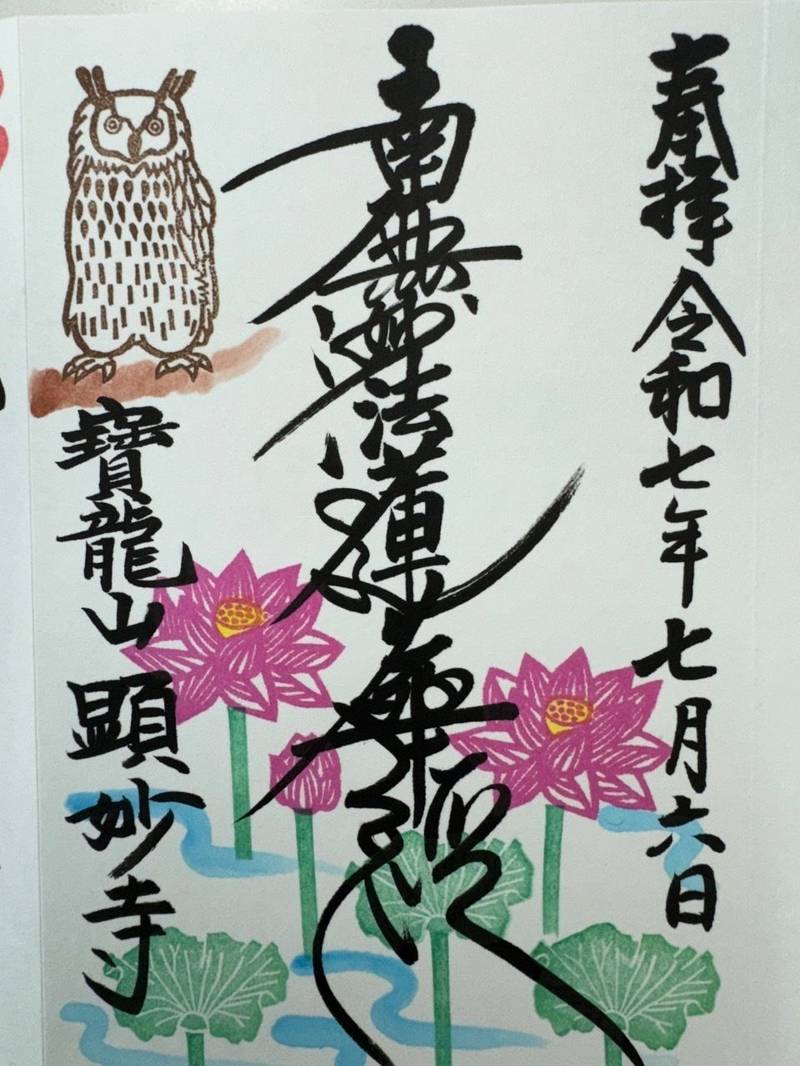 奉拝 令和七年七月六日
南無妙法蓮華経
寶龍山 顕妙寺